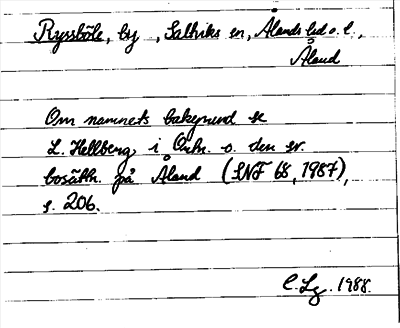 Ryssböle, by, Saltviks sn, Ålands lid o. l.,
Åland
Om namnets bakgrund se
L. Hellberg, i Ortn. o. den sv.
bosättn. på Åland (SNF 68, 1987),
s. 206.
C. Lg. 1988.